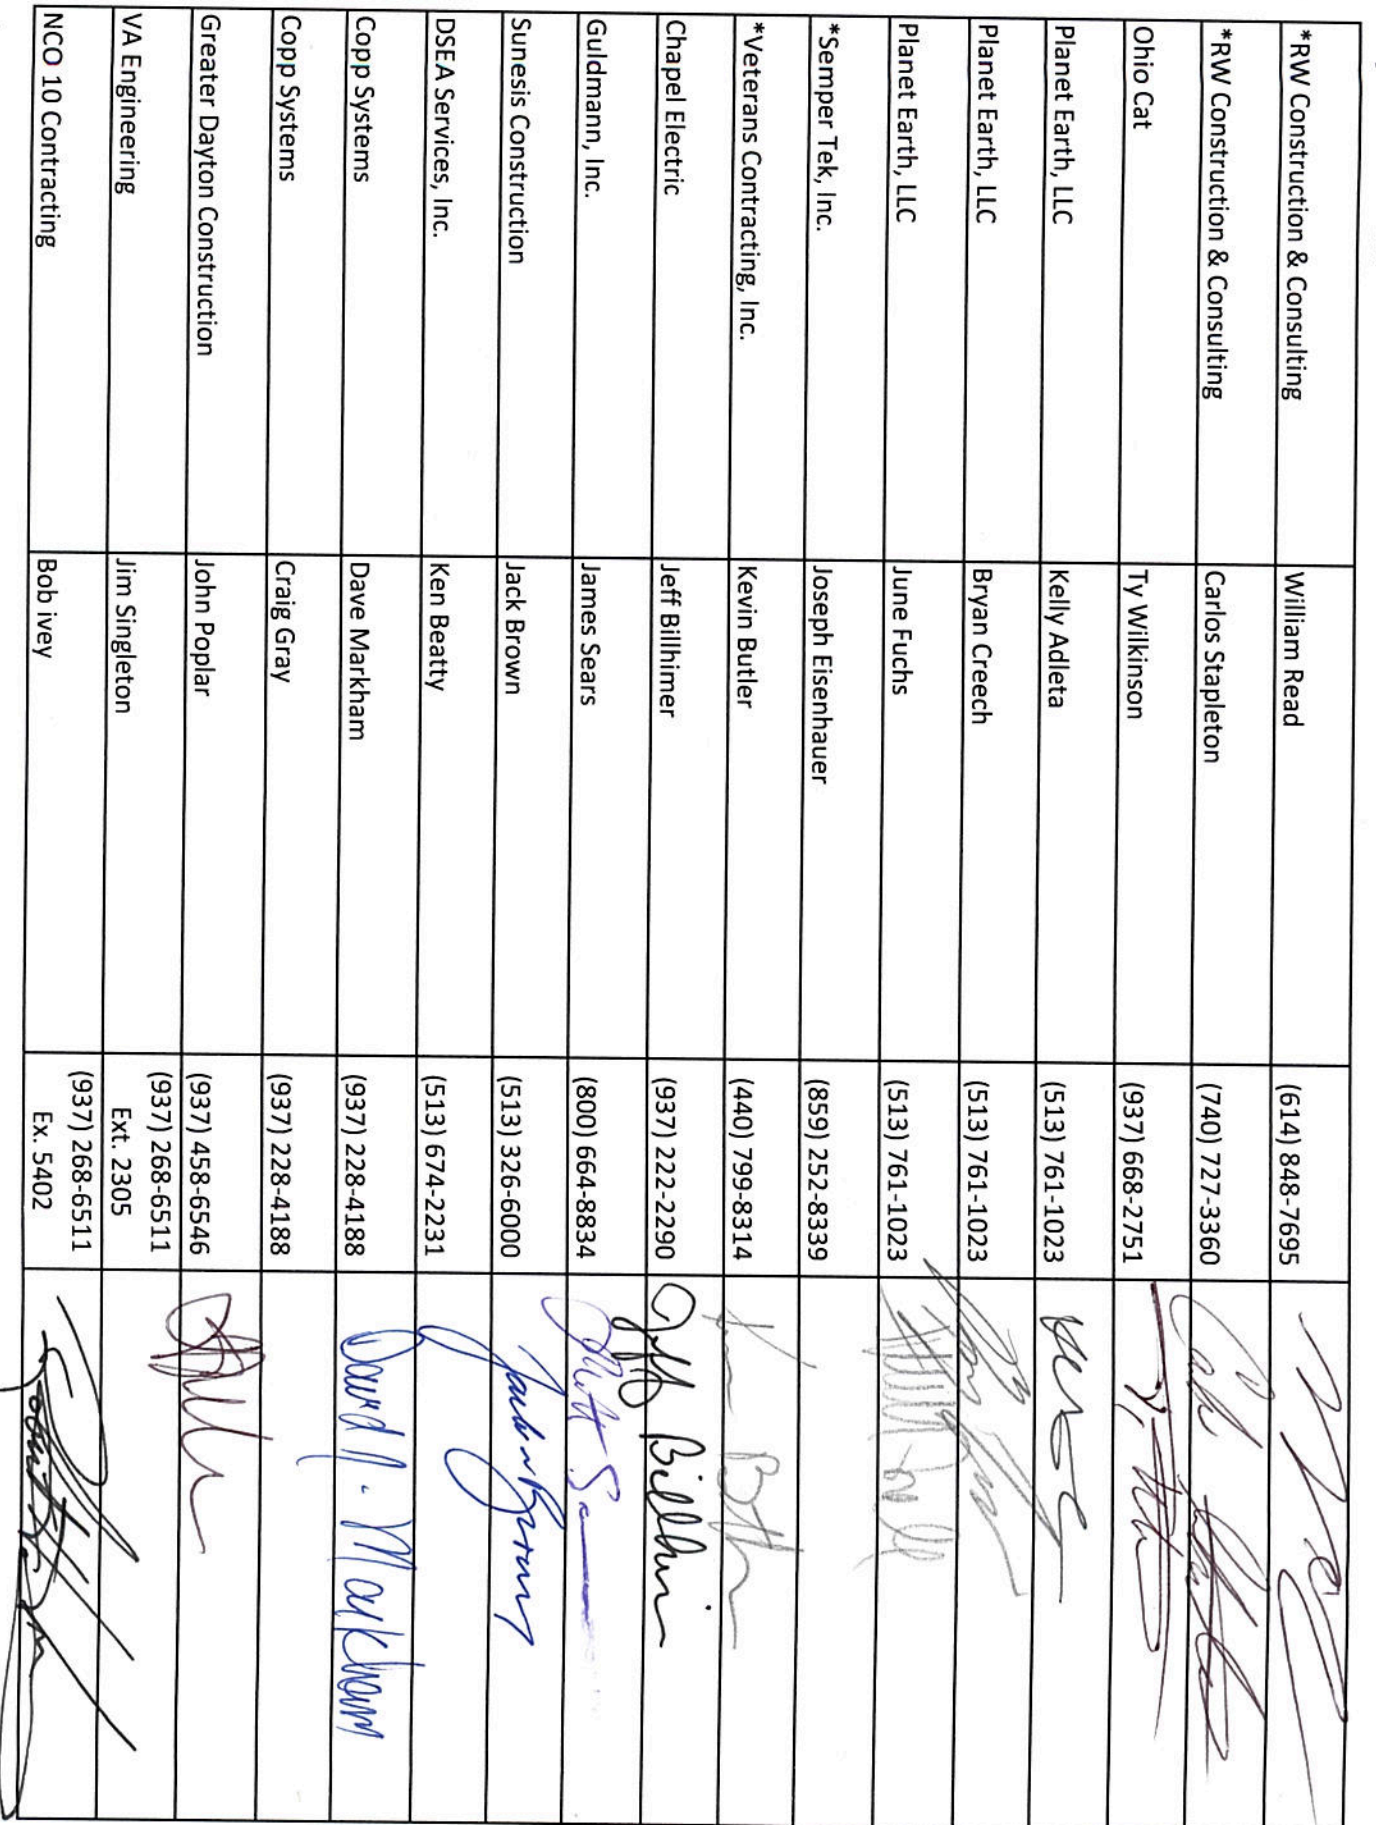 *RW Construction & Consulting William Read (614) 848-7695
*RW Construction & Consulting Carlos Stapleton (740) 727-3360
Ohio Cat Ty Wilkinson (937) 668-2751
Planet Earth, LLC Kelly Adleta (513) 761-1023
Planet Earth, LLC Bryan Creech (513) 761-1023
Planet Earth, LLC June Fuchs (513) 761-1023
*Semper Tek, Inc. Joseph Eisenhauer (859) 252-8339
*Veterans Contracting, Inc. Kevin Butler (440) 799-8314
Chapel Electric Jeff Billhimer (937) 222-2290 Jeff Billhimer
Guldmann, Inc. James Sears (800) 664-8834
Sunesis Construction Jack Brown (513) 326-6000 Brown
DSEA Services, Inc. Ken Beatty (513) 674-2231
Copp Systems Dave Markham (937) 228-4188 David A. Markham
Copp Systems Craig Gray (937) 228-4188
Greater Dayton Construction John Poplar (937) 458-6546
VA Engineering Jim Singleton (937) 268-6511
Ext. 2305
NCO 10 Contracting Bob ivey (937) 268-6511
Ex. 5402